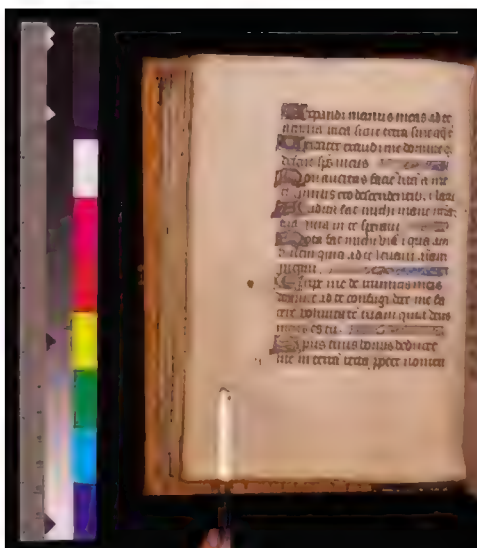 Expandi manus meas ad te
anima mea sicut terra sine aq̄
Velociter exaudi me domine
defecit sp̄s meus
Non auertas faciē tuā a me
et similis ero descendentib; ī lacū
Auditā fac michi mane miā
tuā quia in te speraui
Notā fac michi viā ī qua am
bulem quia ad te leuaui aīam
meam
Eripe me de inimicis meis
domine ad te confugi doce me fa
cere voluntatē tuam quia deus
meus es tu
Spūs tuus bonus deducet
me in terrā rectā ꝓpter nomen